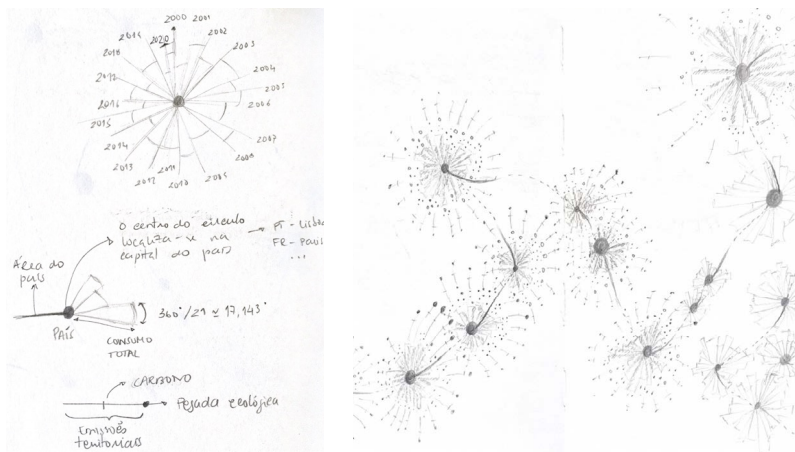 2000
2001
2002
2003
2004
2005
2006
2007
2008
2009
2010
2011
2012
2013
2014
2015
2016
2017
2018
2019
2020
O centro do círculo
localiza-se na
capital do país
PT - Lisbo
FR - Paris
...
Área do
país
360°/21 ≃ 17,143°
PAÍS
CONSUMO
TOTAL
CARBONO
Pegada ecológica
Emissões
territoriais